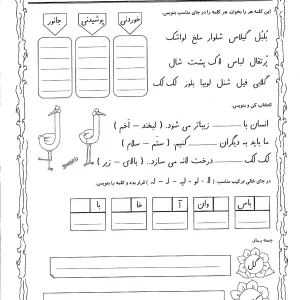 این کلمه ها را بخوان. هر کلمه را در جای مناسب بنویس.
خوردنی پوشیدنی جانور
بُلبُل گیلاس شلوار ملخ لواشک
پُرتقال لباس لاک پشت شال
گلابی فیل شنل لوبیا بلوز لک لک
انتخاب کن و بنویس.
انسان با ........ زیباتر می شود. ( لبخند – اَخم )
ما باید به دیگران ........ کنیم. ( ستم – سلام )
لک لک ........ درخت لانه می سازد. ( بالای – زیر )
در جای خالی ترکیب مناسب ( لا - لو - لیـ - لـ - لـه ) قرار بده و کلمه را بنویس.
باس وان آ خا با
جمله بساز.
گل